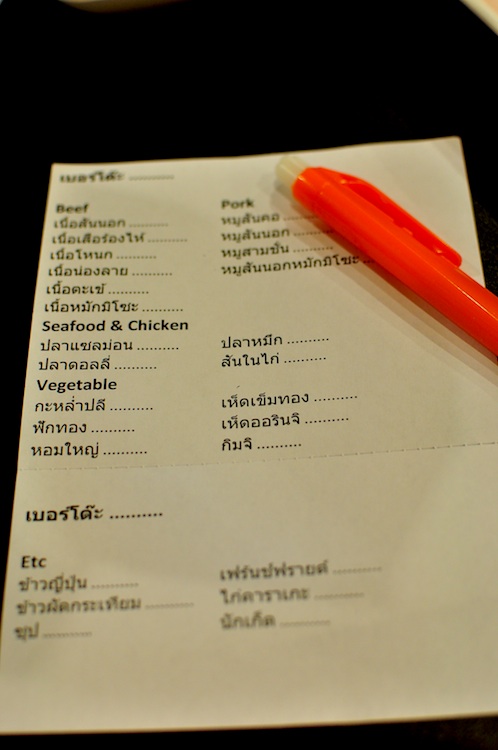 เบอร์โต๊ะ ..........
Beef
เนื้อสันนอก ..........
เนื้อเสือร้องไห้ ..........
เนื้อโหนก ..........
เนื้อน่องลาย ..........
เนื้อตะเข้ ..........
เนื้อหมักมิโซะ ..........
Pork
หมูสันคอ ..........
หมูสันนอก ..........
หมูสามชั้น ..........
หมูสันนอกหมักมิโซะ ...
Seafood & Chicken
ปลาแซลม่อน ..........
ปลาหมึก ..........
ปลาดอลลี่ ..........
สันในไก่ ..........
Vegetable
กะหล่ำปลี ..........
เห็ดเข็มทอง ..........
ฟักทอง ..........
เห็ดออรินจิ ..........
หอมใหญ่ ..........
กิมจิ ..........
เบอร์โต๊ะ ..........
Etc
ข้าวญี่ปุ่น ..........
เฟร้นช์ฟรายด์ ..........
ข้าวผัดกระเทียม ..........
ไก่คาราเกะ ..........
ซุป ..........
นักเก็ต ..........